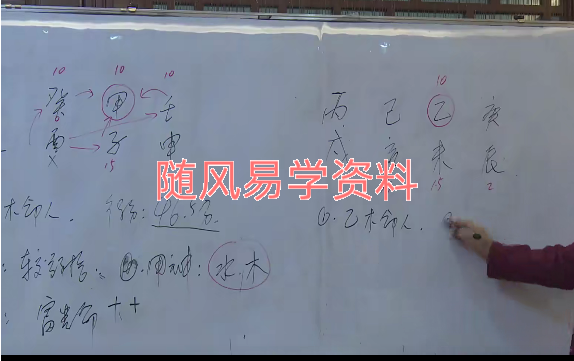 10 10 10
癸 甲 壬
酉 子 申
15
木命人. 得分: 46.5分.
: 较弱格. ④.用神: 水木
: 富贵命 ++
10
丙 己 乙 庚
戌 亥 未 辰
15 2
①.乙木命人.
随风易学资料